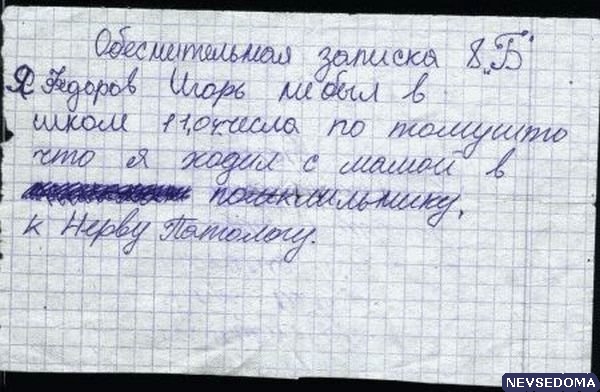 Обеснительная записка 8 „Б"
Я Федоров Игорь небыл в
школ 11,04 числа по томушто
что я ходил с мамой в
поликлильнику,
к Нерву Патологу.
NEVSEDOMA